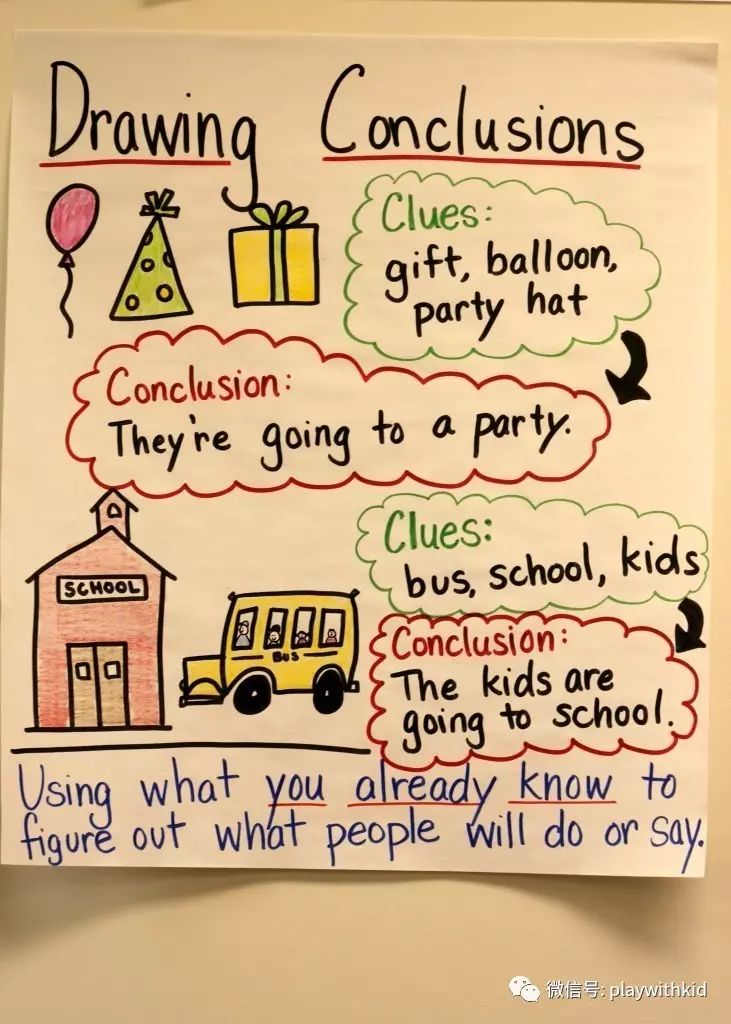 Drawing Conclusions
Clues:
gift, balloon,
party hat
Conclusion:
They're going to a party.
SCHOOL
BUS
Clues:
bus, school, kids
Conclusion:
The kids are
going to school.
Using what you already know to
figure out what people will do or say.
微信号: playwithkid